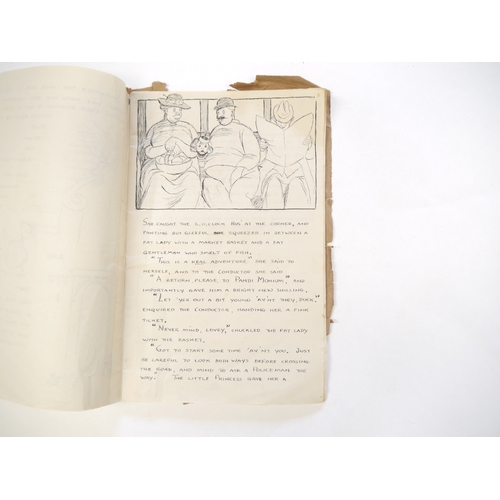 SHE CAUGHT THE 2 O'CLOCK BUS AT THE CORNER, AND
PANTING BUT GLEEFUL SQUEEZED IN BETWEEN A
FAT LADY WITH A MARKET BASKET AND A FAT
GENTLEMAN WHO SMELT OF FISH.
"THIS IS A REAL ADVENTURE" SHE SAID TO
HERSELF, AND TO THE CONDUCTOR SHE SAID
"A RETURN PLEASE TO PANDI MONIUM," AND
IMPORTANTLY GAVE HIM A BRIGHT NEW SHILLING.
"LET 'YER OUT A BIT YOUNG 'AV'NT THEY, DUCK,"
ENQUIRED THE CONDUCTOR, HANDING HER A PINK
TICKET.
"NEVER MIND, LOVEY," CHUCKLED THE FAT LADY
WITH THE BASKET.
"GOT TO START SOME TIME 'AV'NT YOU, JUST
BE CAREFUL TO LOOK BOTH WAYS BEFORE CROSSING
THE ROAD, AND MIND TO ASK A POLICEMAN THE
WAY. THE LITTLE PRINCESS GAVE HER A